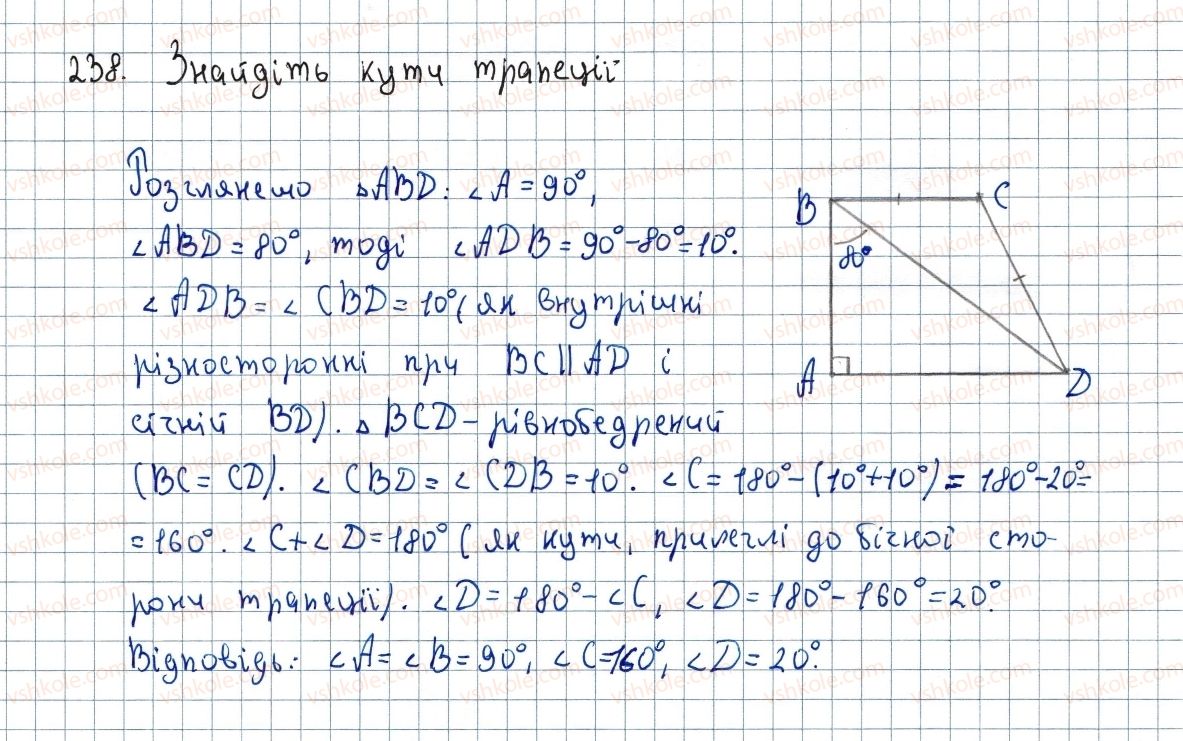 238. Знайдіть кути трапеції
Розглянемо △ABD: ∠A = 90°,
∠ABD = 80°, тоді ∠ADB = 90° - 80° = 10°.
∠ADB = ∠CBD = 10° (як внутрішні
різносторонні при BC || AD і
січній BD). △BCD – рівнобедрений
(BC = CD). ∠CBD = ∠CDB = 10°. ∠C = 180° - (10° + 10°) = 180° - 20° =
= 160°. ∠C + ∠D = 180° (як кути, прилеглі до бічної сто-
рони трапеції). ∠D = 180° - ∠C, ∠D = 180° - 160° = 20°.
Відповідь: ∠A = ∠B = 90°, ∠C = 160°, ∠D = 20°.
B C
80°
A D